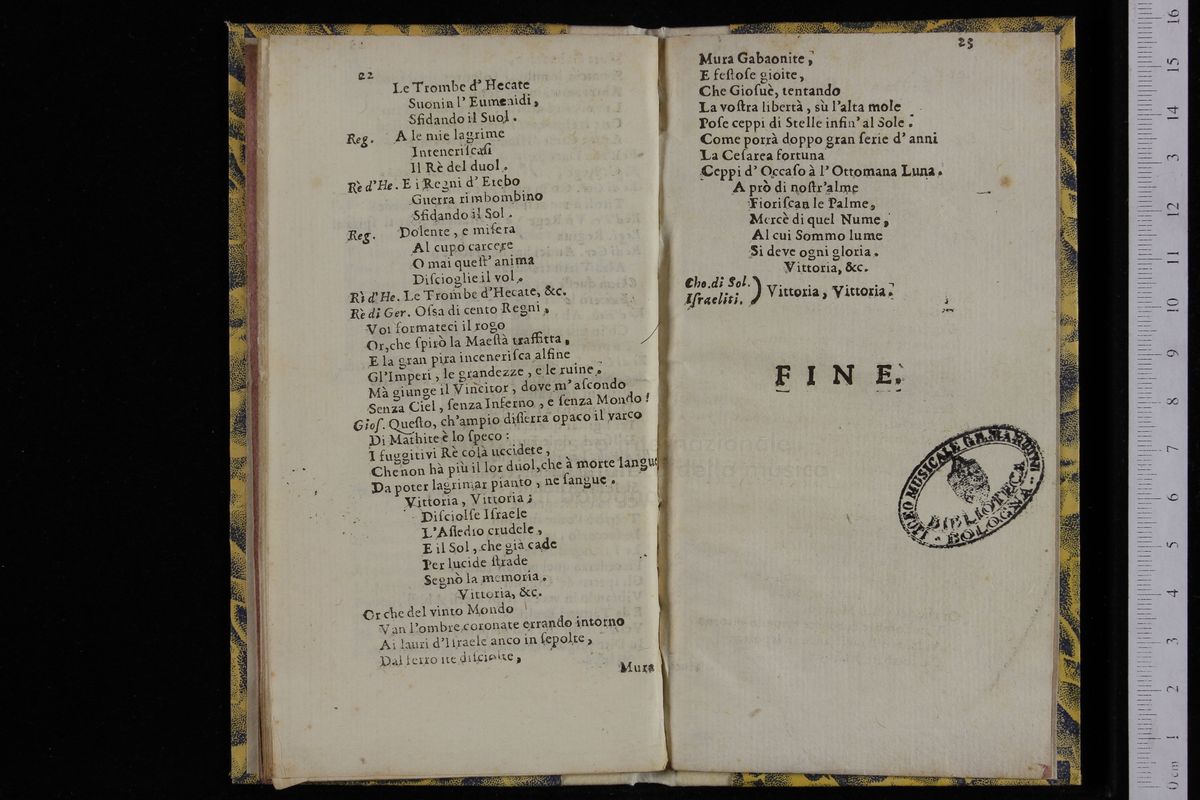 22
Le Trombe d' Hecate
Suonin l' Eumenidi,
Sfidando il Suol.
Reg. A le mie lagrime
Inteneriſcaſi
Il Rè del duol.
Rè d'He. E i Regni d' Erebo
Guerra rimbombino
Sfidando il Sol.
Reg. Dolente, e miſera
Al cupo carcere
O mai queſt' anima
Diſcioglie il vol.
Rè d'He. Le Trombe d'Hecate, &c.
Rè di Ger. Oſſa di cento Regni,
Voi formateci il rogo
Or, che ſpirò la Maeſtà traffitta,
E la gran pira inceneriſca alfine
Gl'Imperi, le grandezze, e le ruine.
Mà giunge il Vincitor, dove m'aſcondo
Senza Ciel, ſenza Inferno, e ſenza Mondo!
Gioſ. Queſto, ch'ampio diſierra opaco il varco
Di Maſhite è lo ſpeco:
I fuggitivi Rè colà uccidete,
Che non hà più il lor duol, che à morte langue
Da poter lagrimar pianto, ne ſangue.
Vittoria, Vittoria;
Diſciolſe Iſraele
L'Aſſedio crudele,
E il Sol, che già cade
Per lucide ſtrade
Segnò la memoria.
Vittoria, &c.
Or che del vinto Mondo
Van l'ombre coronate errando intorno
Ai lauri d'Iſraele anco in ſepolte,
Dal ferro ite diſciolte,
Mura
23
Mura Gabaonite,
E feſtoſe gioite,
Che Gioſuè, tentando
La voſtra libertà, sù l'alta mole
Poſe ceppi di Stelle infin' al Sole.
Come porrà doppo gran ſerie d' anni
La Ceſarea fortuna
Ceppi d' Occaſo à l' Ottomana Luna.
A prò di noſtr'alme
Fioriſcan le Palme,
Mercè di quel Nume,
Al cui Sommo lume
Si deve ogni gloria.
Vittoria, &c.
Cho. di Sol. Iſraeliti. ) Vittoria, Vittoria.
FINE.
LICEO MUSICALE G.B. MARTINI
BIBLIOTECA
BOLOGNA
della musica
0 cm 1 2 3 4 5 6 7 8 9 10 11 12 13 14 15 16